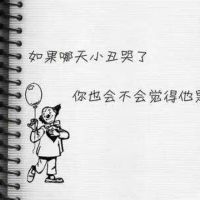 如果哪天小丑哭了
你也会不会觉得他是